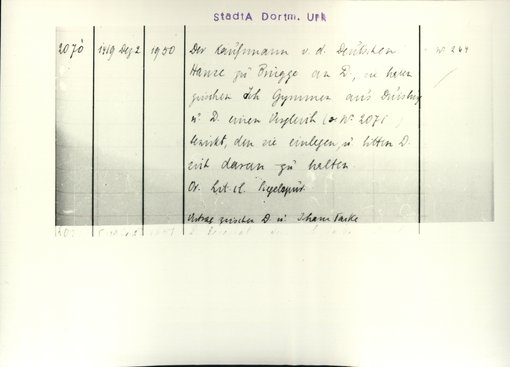 StadtA Dortm. Urk
2070 1419 Dez 2 1950 Der Kaufmann v. d. Deutschen
Hanse zu Brügge an D., sie haben
zwischen Joh Gymmen aus Duisburg
u D. einen Vergleich (= Nr. 2071)
bewirkt, den sie einlegen, u. bitten D.
sich daran zu halten.
Or. lat. cl. Siegelspur.
zwischen D. u.